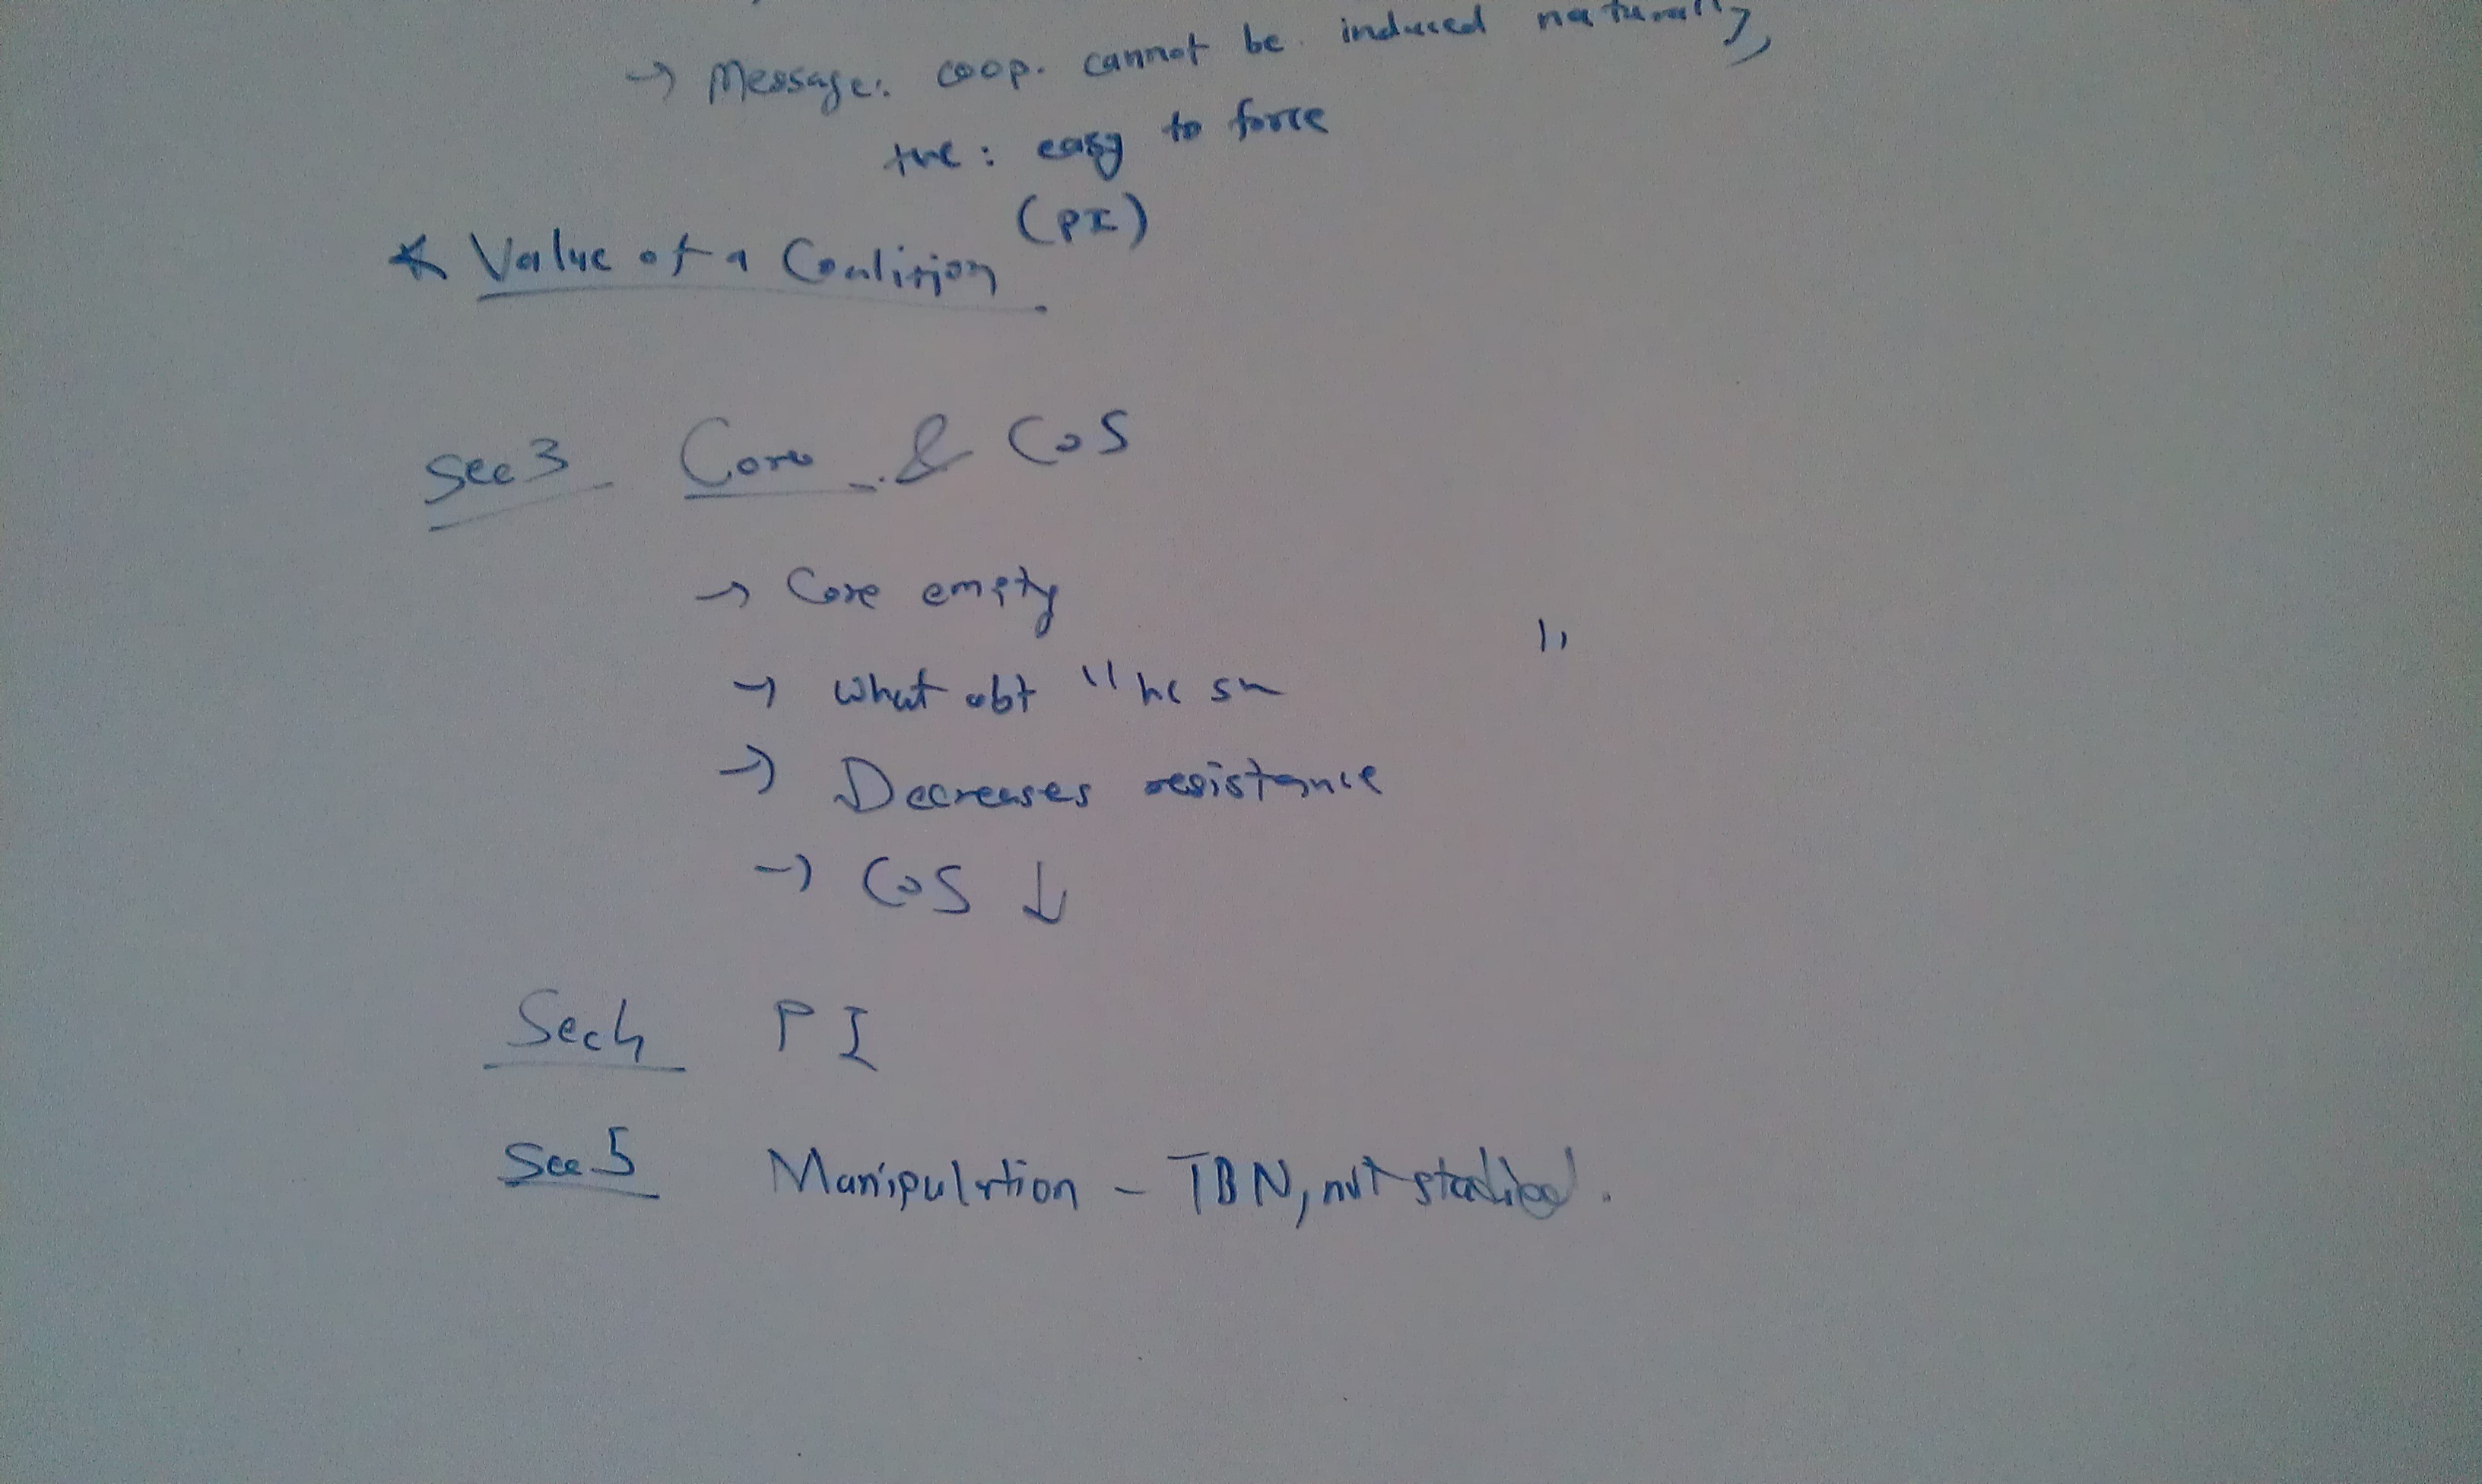 → Message: coop. cannot be induced naturally,
+ve : easy to force
(PI)
* Value of a Coalition
Sec 3 Core & CoS
→ Core empty
→ What abt "
"
→ Decreases resistance
→ CoS ↓
Sec 4 PI
Sec 5 Manipulation - TBN, not studied.